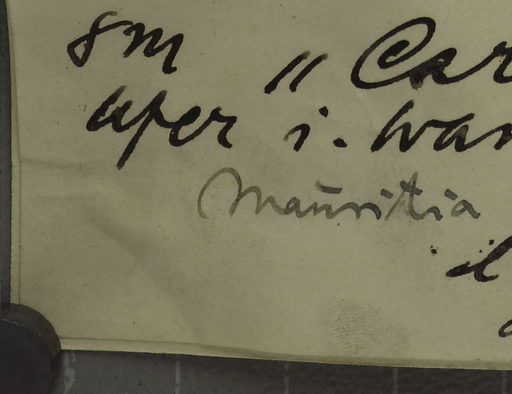 8m " Car
aper i. war
Mauritia
il